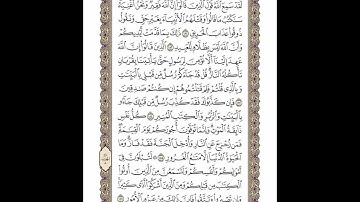 لَّقَدْ سَمِعَ ٱللَّهُ قَوْلَ ٱلَّذِينَ قَالُوٓا۟ إِنَّ ٱللَّهَ فَقِيرٌ وَنَحْنُ أَغْنِيَآءُ
سَنَكْتُبُ مَا قَالُوا۟ وَقَتْلَهُمُ ٱلْأَنۢبِيَآءَ بِغَيْرِ حَقٍّ وَنَقُولُ
ذُوقُوا۟ عَذَابَ ٱلْحَرِيقِ ۝ ذَٰلِكَ بِمَا قَدَّمَتْ أَيْدِيكُمْ
وَأَنَّ ٱللَّهَ لَيْسَ بِظَلَّامٍ لِّلْعَبِيدِ ۝ ٱلَّذِينَ قَالُوٓا۟ إِنَّ ٱللَّهَ
عَهِدَ إِلَيْنَآ أَلَّا نُؤْمِنَ لِرَسُولٍ حَتَّىٰ يَأْتِيَنَا بِقُرْبَانٍ
تَأْكُلُهُ ٱلنَّارُ قُلْ قَدْ جَآءَكُمْ رُسُلٌ مِّن قَبْلِى بِٱلْبَيِّنَٰتِ
وَبِٱلَّذِى قُلْتُمْ فَلِمَ قَتَلْتُمُوهُمْ إِن كُنتُمْ صَٰدِقِينَ
۝ فَإِن كَذَّبُوكَ فَقَدْ كُذِّبَ رُسُلٌ مِّن قَبْلِكَ جَآءُو
بِٱلْبَيِّنَٰتِ وَٱلزُّبُرِ وَٱلْكِتَٰبِ ٱلْمُنِيرِ ۝ كُلُّ نَفْسٍ
ذَآئِقَةُ ٱلْمَوْتِ وَإِنَّمَا تُوَفَّوْنَ أُجُورَكُمْ يَوْمَ ٱلْقِيَٰمَةِ
فَمَن زُحْزِحَ عَنِ ٱلنَّارِ وَأُدْخِلَ ٱلْجَنَّةَ فَقَدْ فَازَ وَمَا
ٱلْحَيَوٰةُ ٱلدُّنْيَآ إِلَّا مَتَٰعُ ٱلْغُرُورِ ۝ لَتُبْلَوُنَّ فِىٓ
أَمْوَٰلِكُمْ وَأَنفُسِكُمْ وَلَتَسْمَعُنَّ مِنَ ٱلَّذِينَ أُوتُوا۟
ٱلْكِتَٰبَ مِن قَبْلِكُمْ وَمِنَ ٱلَّذِينَ أَشْرَكُوٓا۟ أَذًى كَثِيرًا
وَإِن تَصْبِرُوا۟ وَتَتَّقُوا۟ فَإِنَّ ذَٰلِكَ مِنْ عَزْمِ ٱلْأُمُورِ